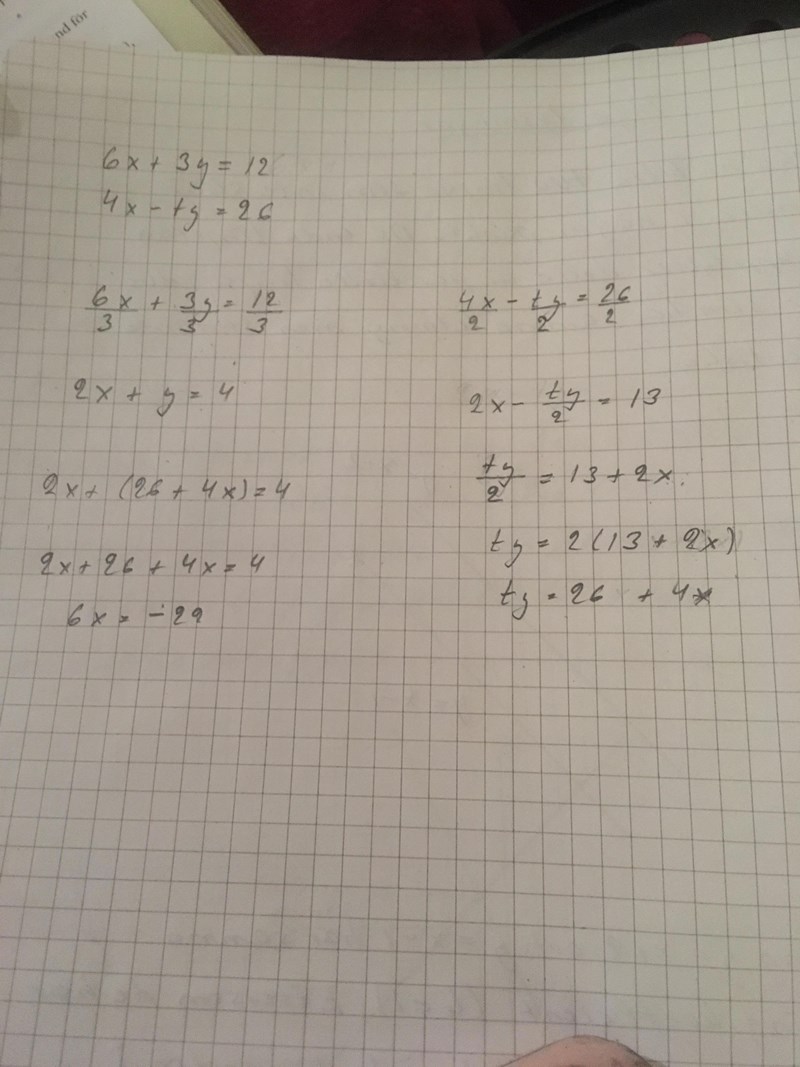 nd för
6x + 3y = 12
4x - ty = 26
6x/3 + 3y/3 = 12/3
2x + y = 4
2x + (26 + 4x) = 4
2x + 26 + 4x = 4
6x = -29
4x/2 - ty/2 = 26/2
2x - ty/2 = 13
ty/2 = 13 + 2x.
ty = 2(13 + 2x)
ty = 26 + 4x